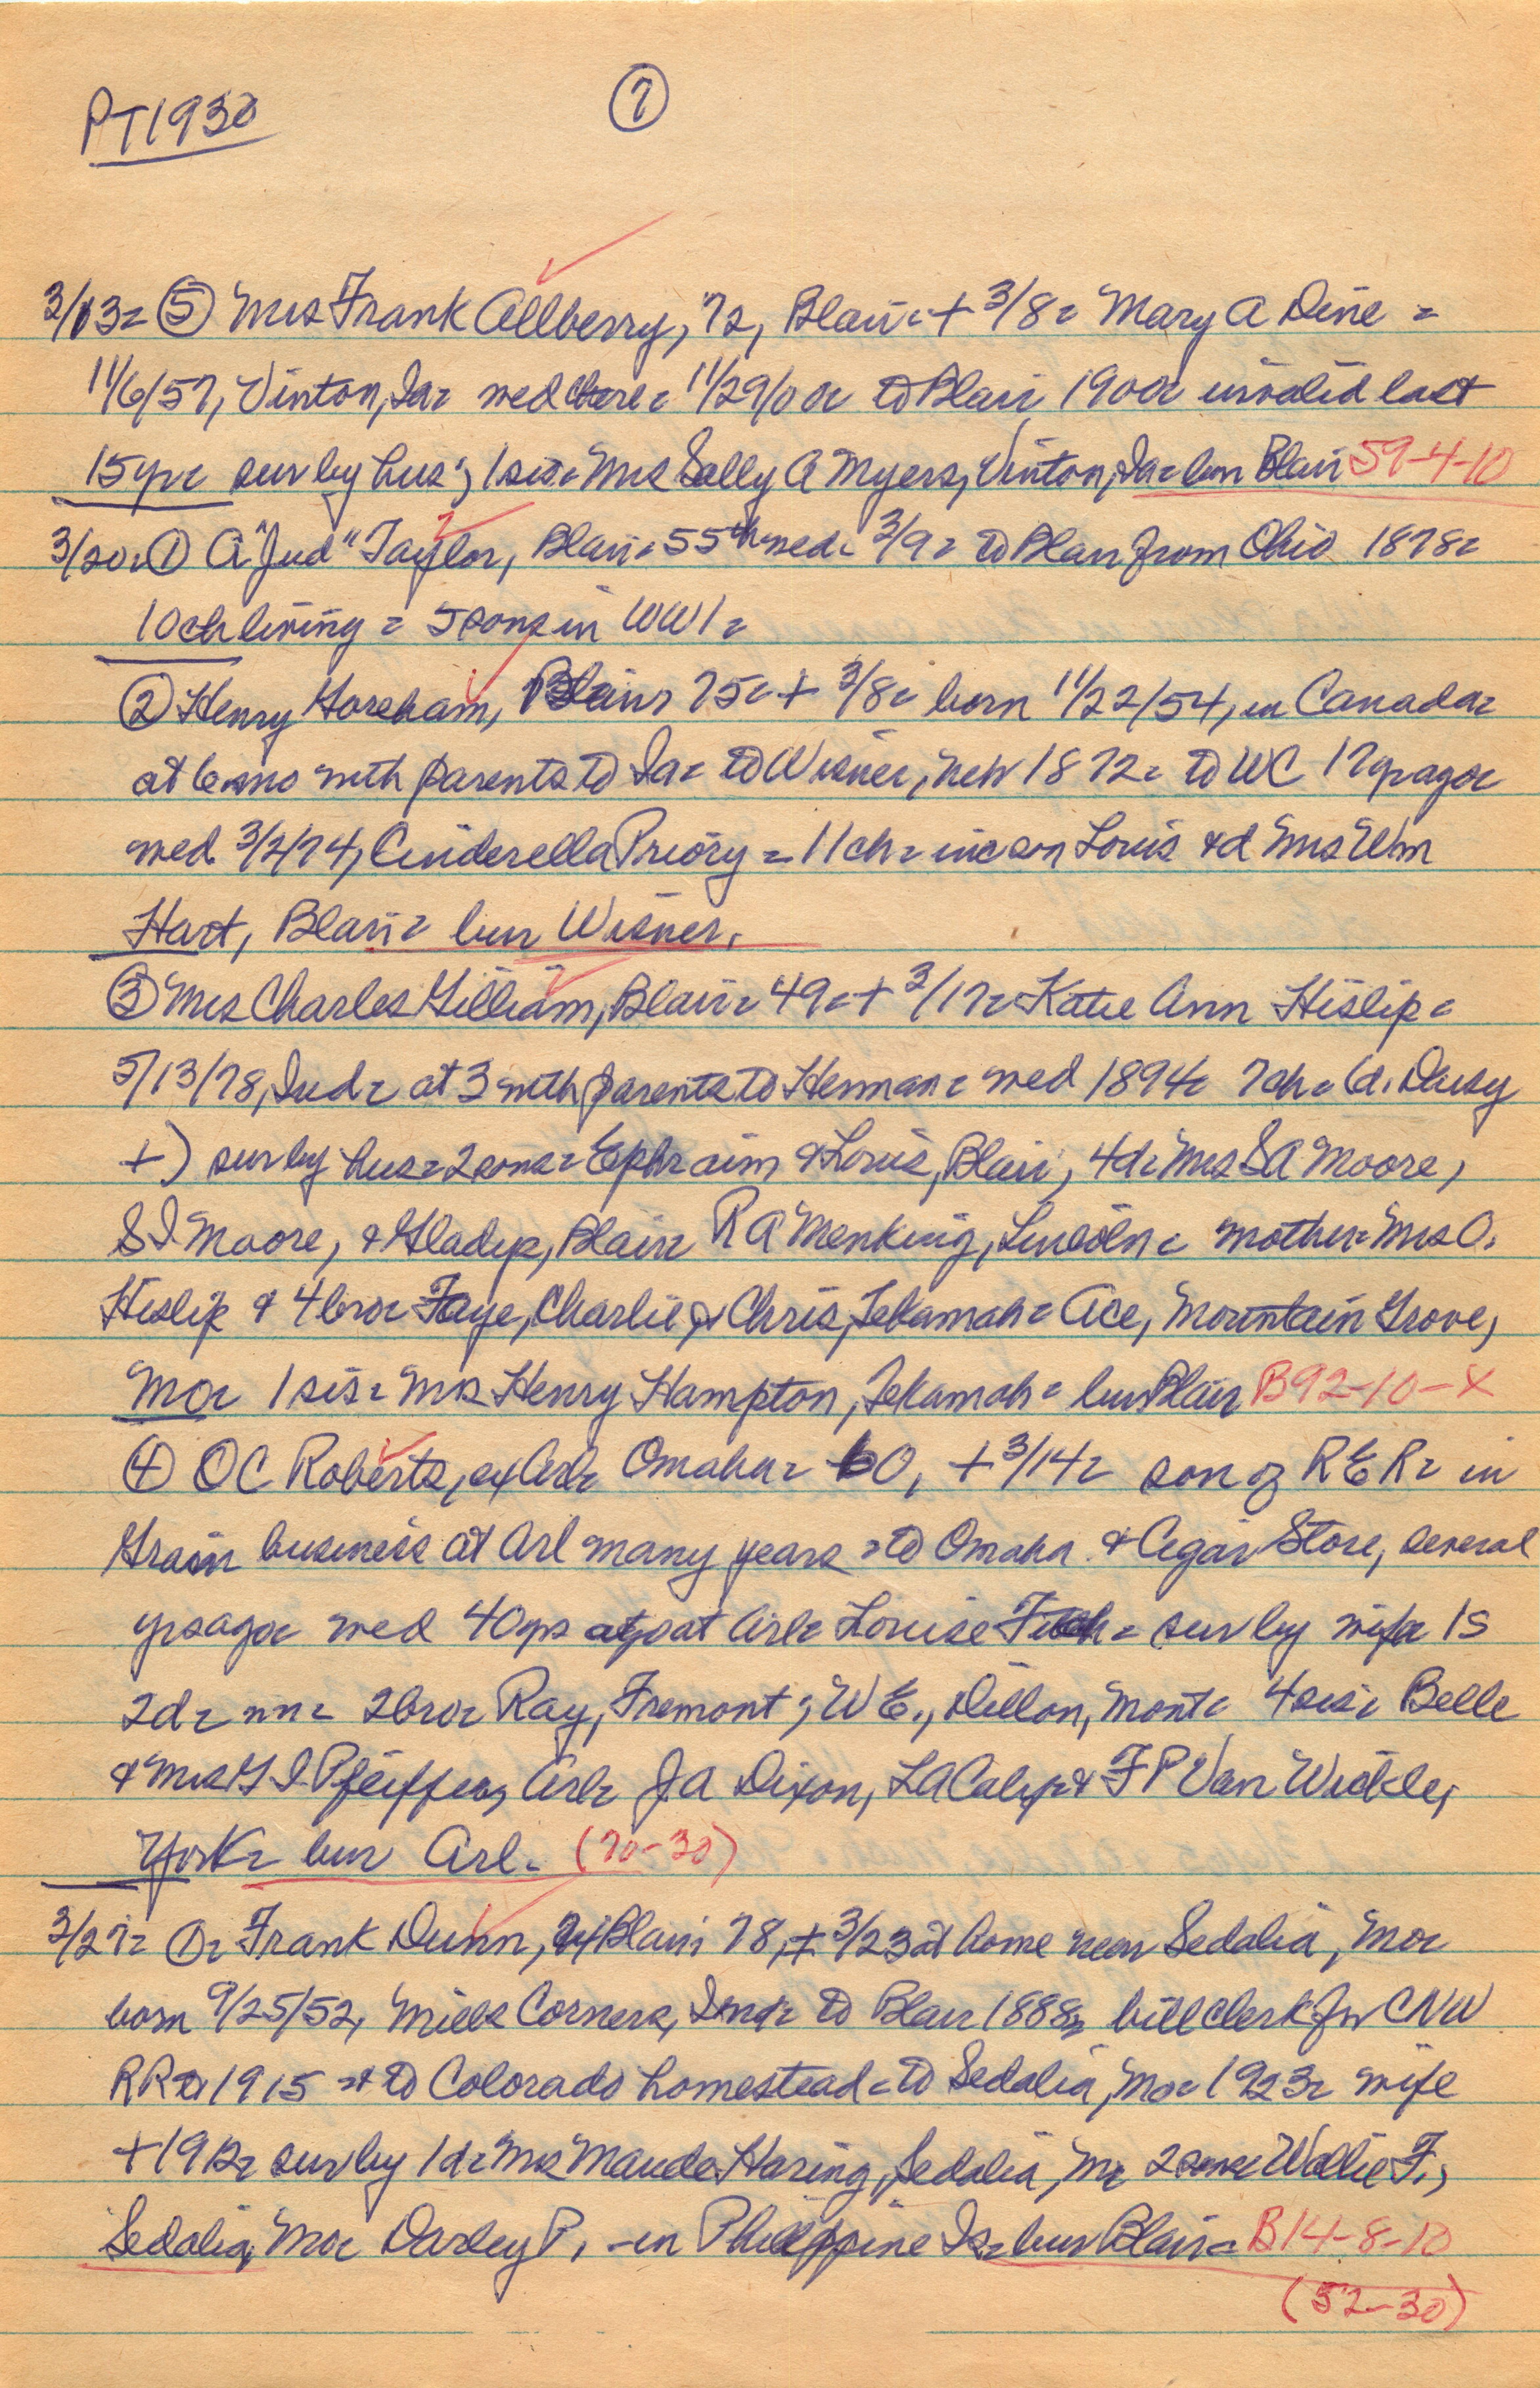 PT1930
7
3/13= 5 Mrs Frank Allberry, 72, Blair= + 3/8= Mary A Dine =
11/6/57, Vinton, Ia= med there= 11/29/00= to Blair 1900= invalid last
15yr= sur by hus; 1 sis= Mrs Sally A Myers, Vinton, Ia= bur Blair 59-4-10
3/20= 1 A "Jud" Taylor, Blair= 55th wed= 3/9= to Blair from Ohio 1878=
10 ch living = 5 sons in WW1=
2 Henry Goreham, Blair= 75= + 3/8= born 11/22/54, in Canada=
at 6 mo with parents to Ia= to Wisner, Neb 1872= to WC 17 yr ago=
med 3/2/74, Cinderella Priory = 11 ch = inc son Louis & d Mrs Wm
Hart, Blair= bur Wisner.
3 Mrs Charles Gilliam, Blair= 49= + 3/17= Katie Ann Hislip=
5/13/78, Ind= at 3 with parents to Herman= med 1894= 7ch= (d. Daisy
+) sur by hus= 2 sons= Ephraim & Louis, Blair; 4d= Mrs SA Moore,
S I Moore, & Gladys, Blair= R A Menking, Lincoln= mother= Mrs O.
Hislip & 4 bro= Faye, Charlie, & Chris, Tekamah= Ace, Mountain Grove,
Mo= 1 sis= Mrs Henry Hampton, Tekamah= bur Blair B92-10-X
4 OC Roberts, ex Arl= Omaha= 60, + 3/14= son of R E R= in
Grain business at Arl many years = to Omaha & Cigar Store, several
yrs ago= med 40 yrs ago at Arl= Louise Fitch= sur by wife= 1s
2d= nn= 2 bro= Ray, Fremont; W E., Dillon, Mont= 4 sis= Belle
& Mrs G I Pfeiffer, Arl= J A Dixon, LA Calif & F P Van Wickle,
York= bur Arl. (70-30)
3/27= 1= Frank Dunn, ex Blair 78, + 3/23 at home near Sedalia, Mo=
born 9/25/52, Mills Corners, Ind= to Blair 1888= bill clerk for CNW
RR to 1915 = & to Colorado homestead= to Sedalia, Mo= 1923= wife
+ 1912= sur by 1 d= Mrs Maude Haring, Sedalia, Mo= 2 sons= Wallie F.,
Sedalia, Mo= Darley P. -in Philippine Is= bur Blair= B14-8-10
(52-30)